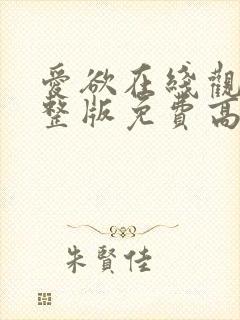 愛欲在綫觀
整版免費高
朱賢佳